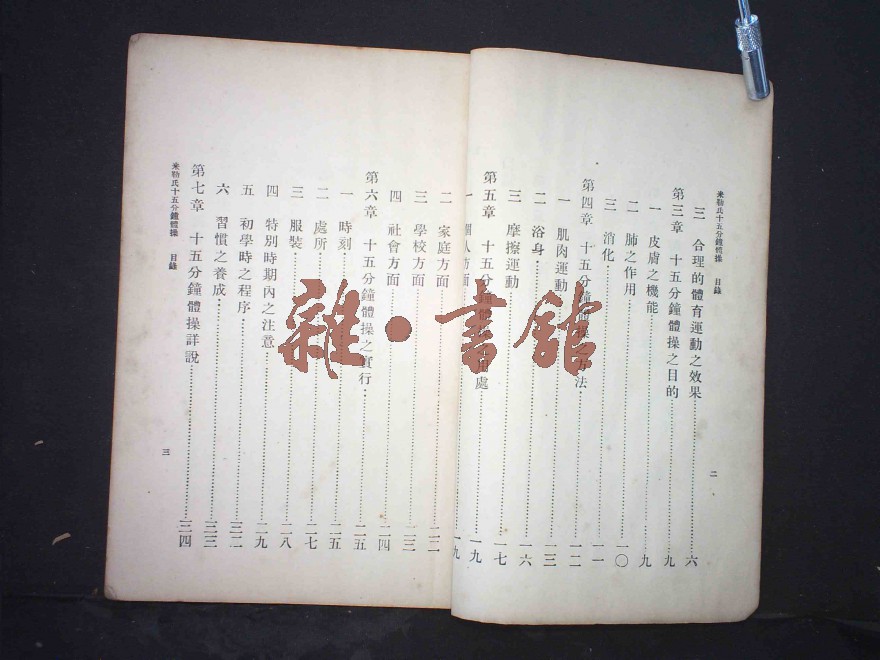 米勒氏十五分鐘體操 目錄
三 合理的體育運動之效果……六
第三章 十五分鐘體操之目的……九
一 皮膚之機能……九
二 肺之作用……一〇
三 消化……一一
第四章 十五分鐘體操之方法……一二
一 肌肉運動……一三
二 浴身……一六
三 摩擦運動……一七
第五章 十五分鐘體操之用處……一九
一 個人方面……一九
二
二 家庭方面……二二
三 學校方面……二三
四 社會方面……二四
第六章 十五分鐘體操之實行……二五
一 時刻……二五
二 處所……二七
三 服裝……二八
四 特別時期內之注意……二九
五 初學時之程序……三二
六 習慣之養成……三三
第七章 十五分鐘體操詳說……三四
米勒氏十五分鐘體操 目錄
三
雜·書館